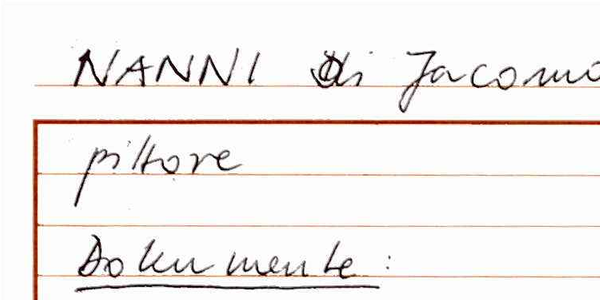 NANNI di Jacomo
pittore
Dokumente: